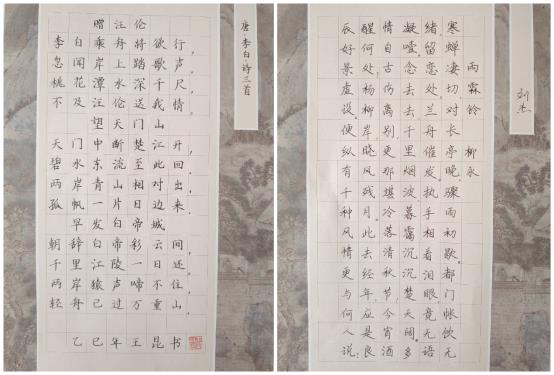 唐·李白诗三首
赠汪伦
李白乘舟将欲行，
忽闻岸上踏歌声。
桃花潭水深千尺，
不及汪伦送我情。
望天门山
天门中断楚江开，
碧水东流至此回。
两岸青山相对出，
孤帆一片日边来。
早发白帝城
朝辞白帝彩云间，
千里江陵一日还。
两岸猿声啼不住，
轻舟已过万重山。
乙巳年王昆书
刘杰
雨霖铃 柳永
寒蝉凄切对长亭晚骤雨初歇。都门帐饮无
绪留恋处兰舟催发。执手相看泪眼竟无语
凝噎。念去去千里烟波暮霭沉沉楚天阔。多
情自古伤离别。更那堪冷落清秋节。今宵酒
醒何处。杨柳岸晓风残月。此去经年，应是良
辰好景虚设。便纵有千种风情更与何人说：